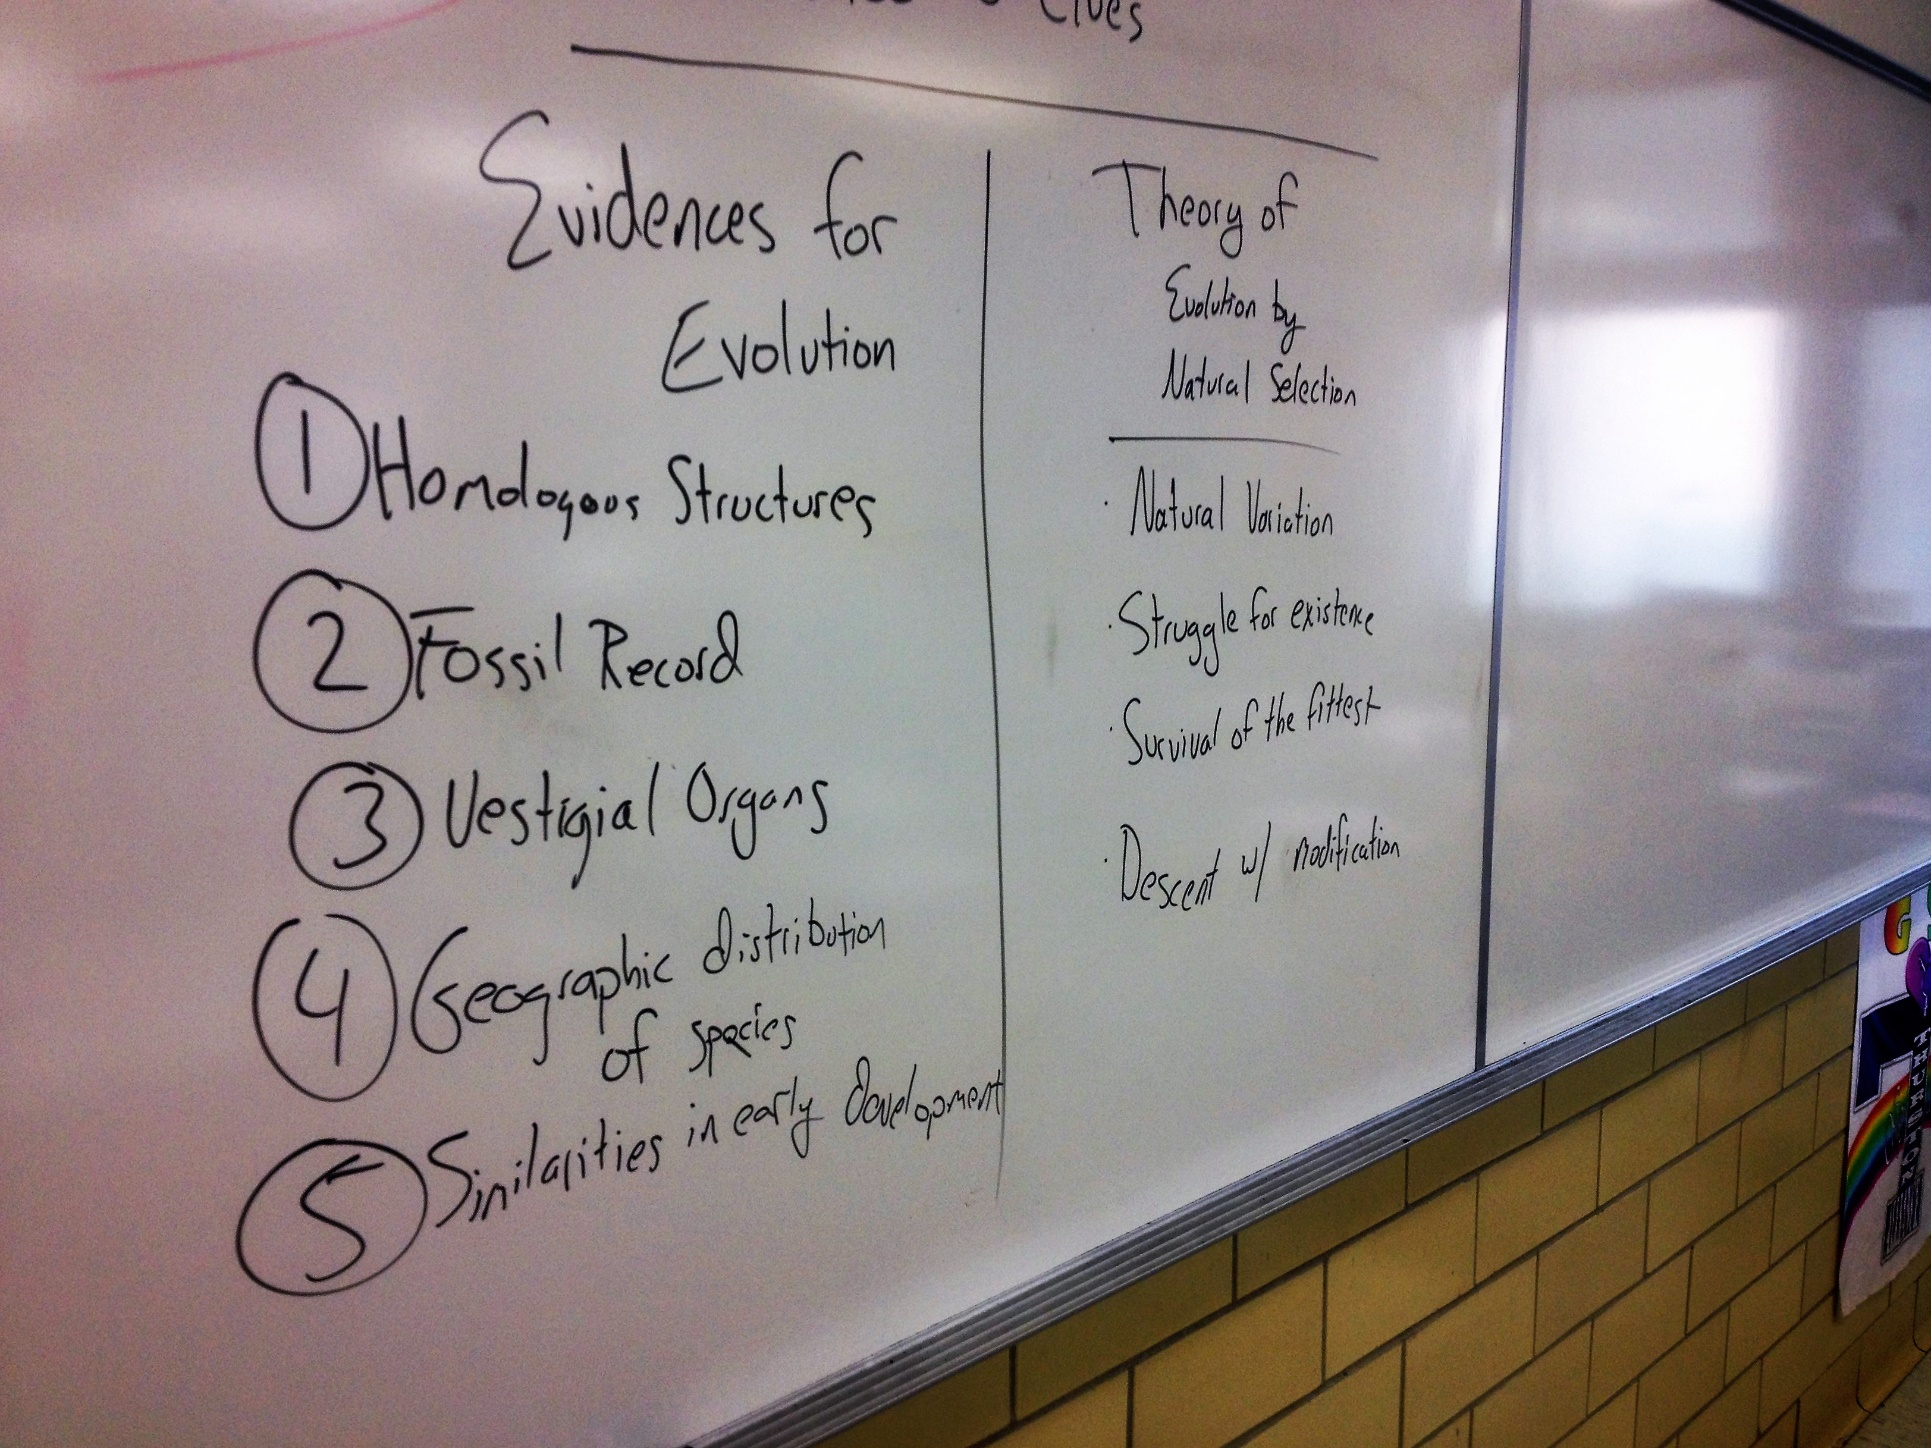 Clues
Evidences for
Evolution
1 Homologous Structures
2 Fossil Record
3 Vestigial Organs
4 Geographic distribution
of species
5 Similarities in early development
Theory of
Evolution by
Natural Selection
· Natural Variation
· Struggle for existence
· Survival of the fittest
· Descent w/ modification